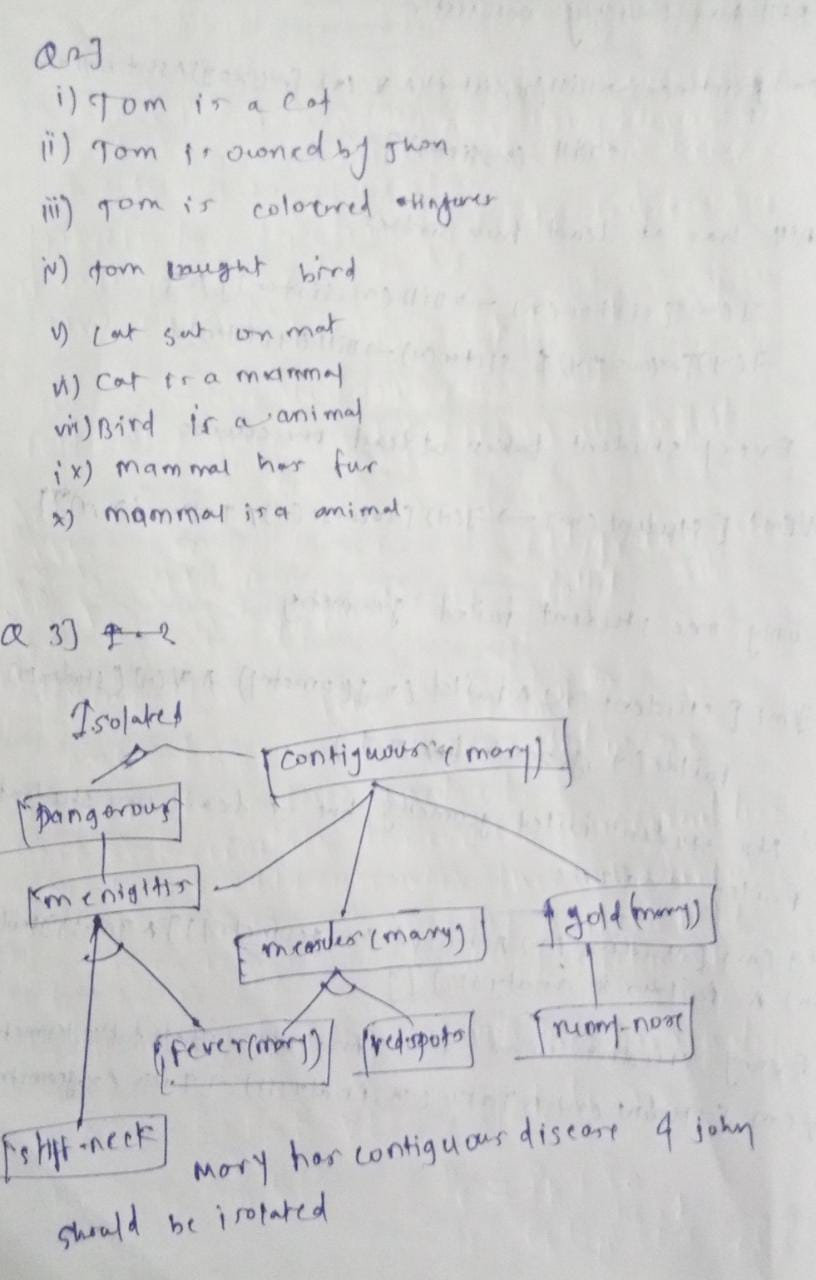 Q2]
i) Tom is a Cat
ii) Tom is owned by Jhon
iii) Tom is coloured
iv) Tom caught bird
v) Cat sat on mat
vi) Cat is a mammal
vii) Bird is a animal
ix) mammal has fur
x) mammal is a animal
Q 3]
Isolated
contiguous (mary)
Dangorous
menigitis
measles (mary)
gold (mary)
fever (mary)
red spots
runny-nose
stiff-neck
Mary has contiguous disease & john
should be isolated